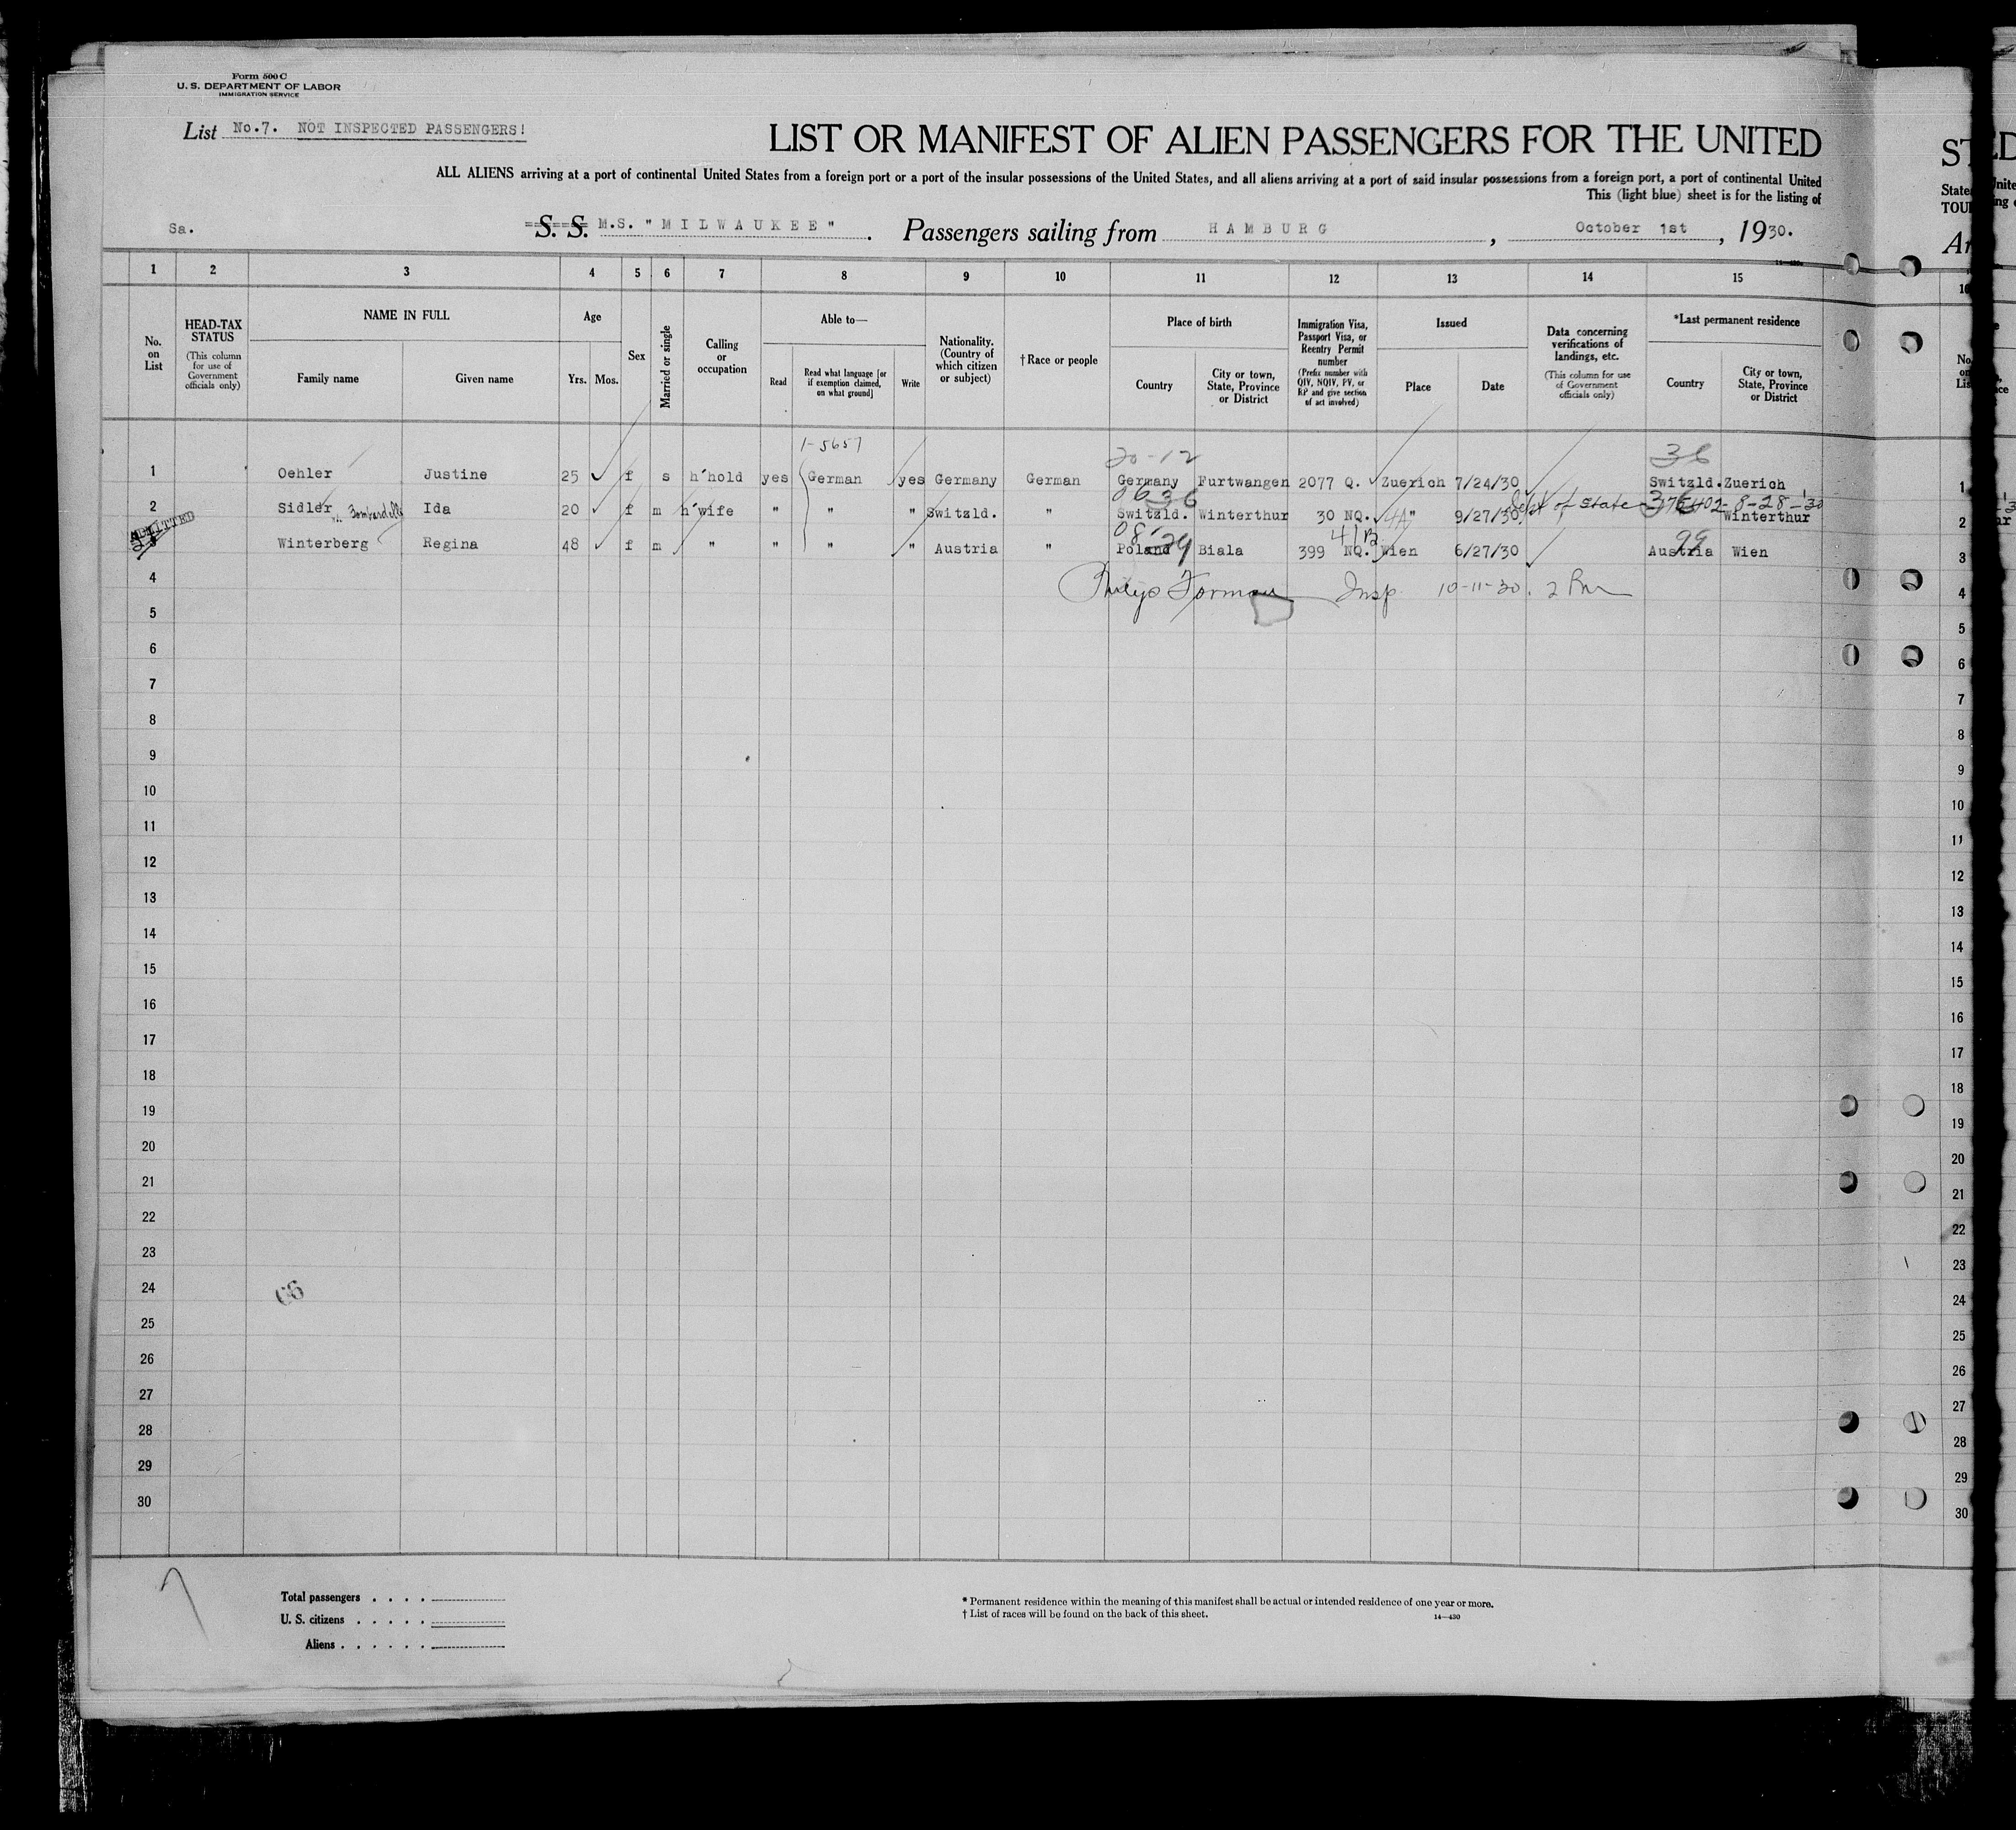 Form 500 C
U. S. DEPARTMENT OF LABOR
IMMIGRATION SERVICE
List No.7. NOT INSPECTED PASSENGERS!
LIST OR MANIFEST OF ALIEN PASSENGERS FOR THE UNITED
ALL ALIENS arriving at a port of continental United States from a foreign port or a port of the insular possessions of the United States, and all aliens arriving at a port of said insular possessions from a foreign port, a port of continental United
This (light blue) sheet is for the listing of
Sa. S. S. M.S. "MILWAUKEE". Passengers sailing from HAMBURG, October 1st, 1930.
1 2 3 4 5 6 7 8 9 10 11 12 13 14 15
No. on List
HEAD-TAX STATUS
(This column for use of Government officials only)
NAME IN FULL
Family name Given name
Age
Yrs. Mos.
Sex
Married or single
Calling or occupation
Able to—
Read
Read what language [or if exemption claimed, on what ground]
Write
Nationality. (Country of which citizen or subject)
†Race or people
Place of birth
Country
City or town, State, Province or District
Immigration Visa, Passport Visa, or Reentry Permit number
(Prefix number with QIV, NQIV, PV, or RP and give section of act involved)
Issued
Place Date
Data concerning verifications of landings, etc.
(This column for use of Government officials only)
*Last permanent residence
Country
City or town, State, Province or District
1-5657
20-12
36
1 Oehler Justine 25 f s h'hold yes German yes Germany German Germany Furtwangen 2077 Q. Zuerich 7/24/30 Switzld. Zuerich
06 36
Dept of State
8-28-30
2 Sidler Ida 20 f m h'wife " " " Switzld. " Switzld. Winterthur 30 NQ. 4A " 9/27/30 Winterthur
ADMITTED
99
3 Winterberg Regina 48 f m " " " " Austria " Poland Biala 399 NQ. Wien 6/27/30 Austria Wien
4
Forman Insp. 10-11-30. 2 Pm
5
6
7
8
9
10
11
12
13
14
15
16
17
18
19
20
21
22
23
24
25
26
27
28
29
30
Total passengers . . . .
U. S. citizens . . . . .
Aliens . . . . . .
* Permanent residence within the meaning of this manifest shall be actual or intended residence of one year or more.
† List of races will be found on the back of this sheet.
14—430
1
2
3
4
5
6
7
8
9
10
11
12
13
14
15
16
17
18
19
20
21
22
23
24
25
26
27
28
29
30